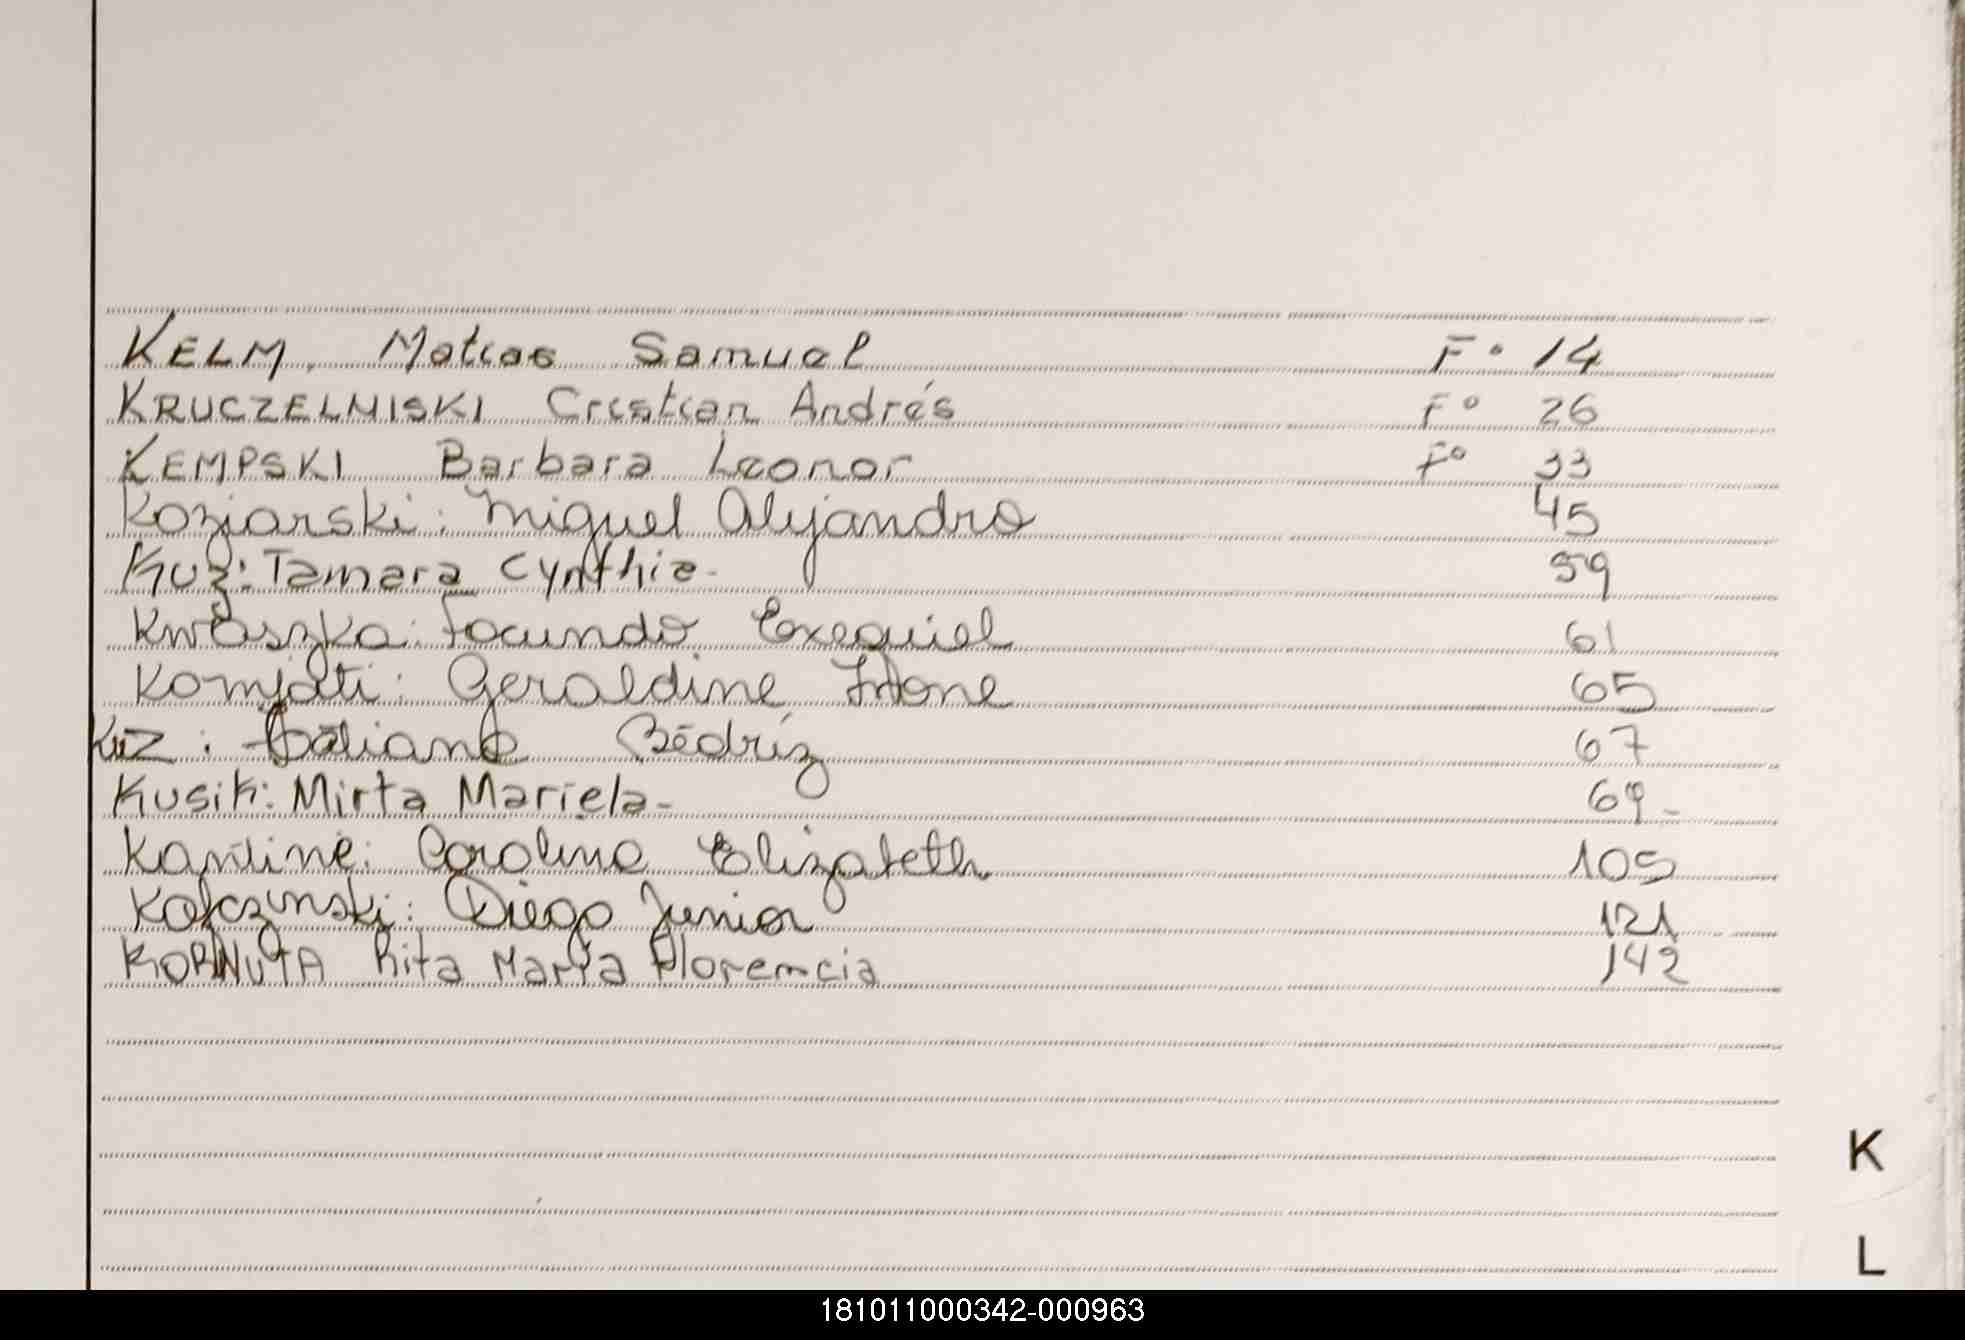 KELM, Matias Samuel F° 14
KRUCZELNISKI Cristian Andrés F° 26
KEMPSKI Barbara Leonor F° 33
Koziarski: Miguel Alejandro 45
Kuz: Tamara Cynthia- 59
Kwaszka: Facundo Exequiel 61
Komjati: Geraldine Ivone 65
Kuz: 67
Kusik: Mirta Mariela- 69-
Carolina Elizabeth 105
Kafczinski: Diego Junior 121
KORNUTA Rita María Florencia 142
K
L
181011000342-000963